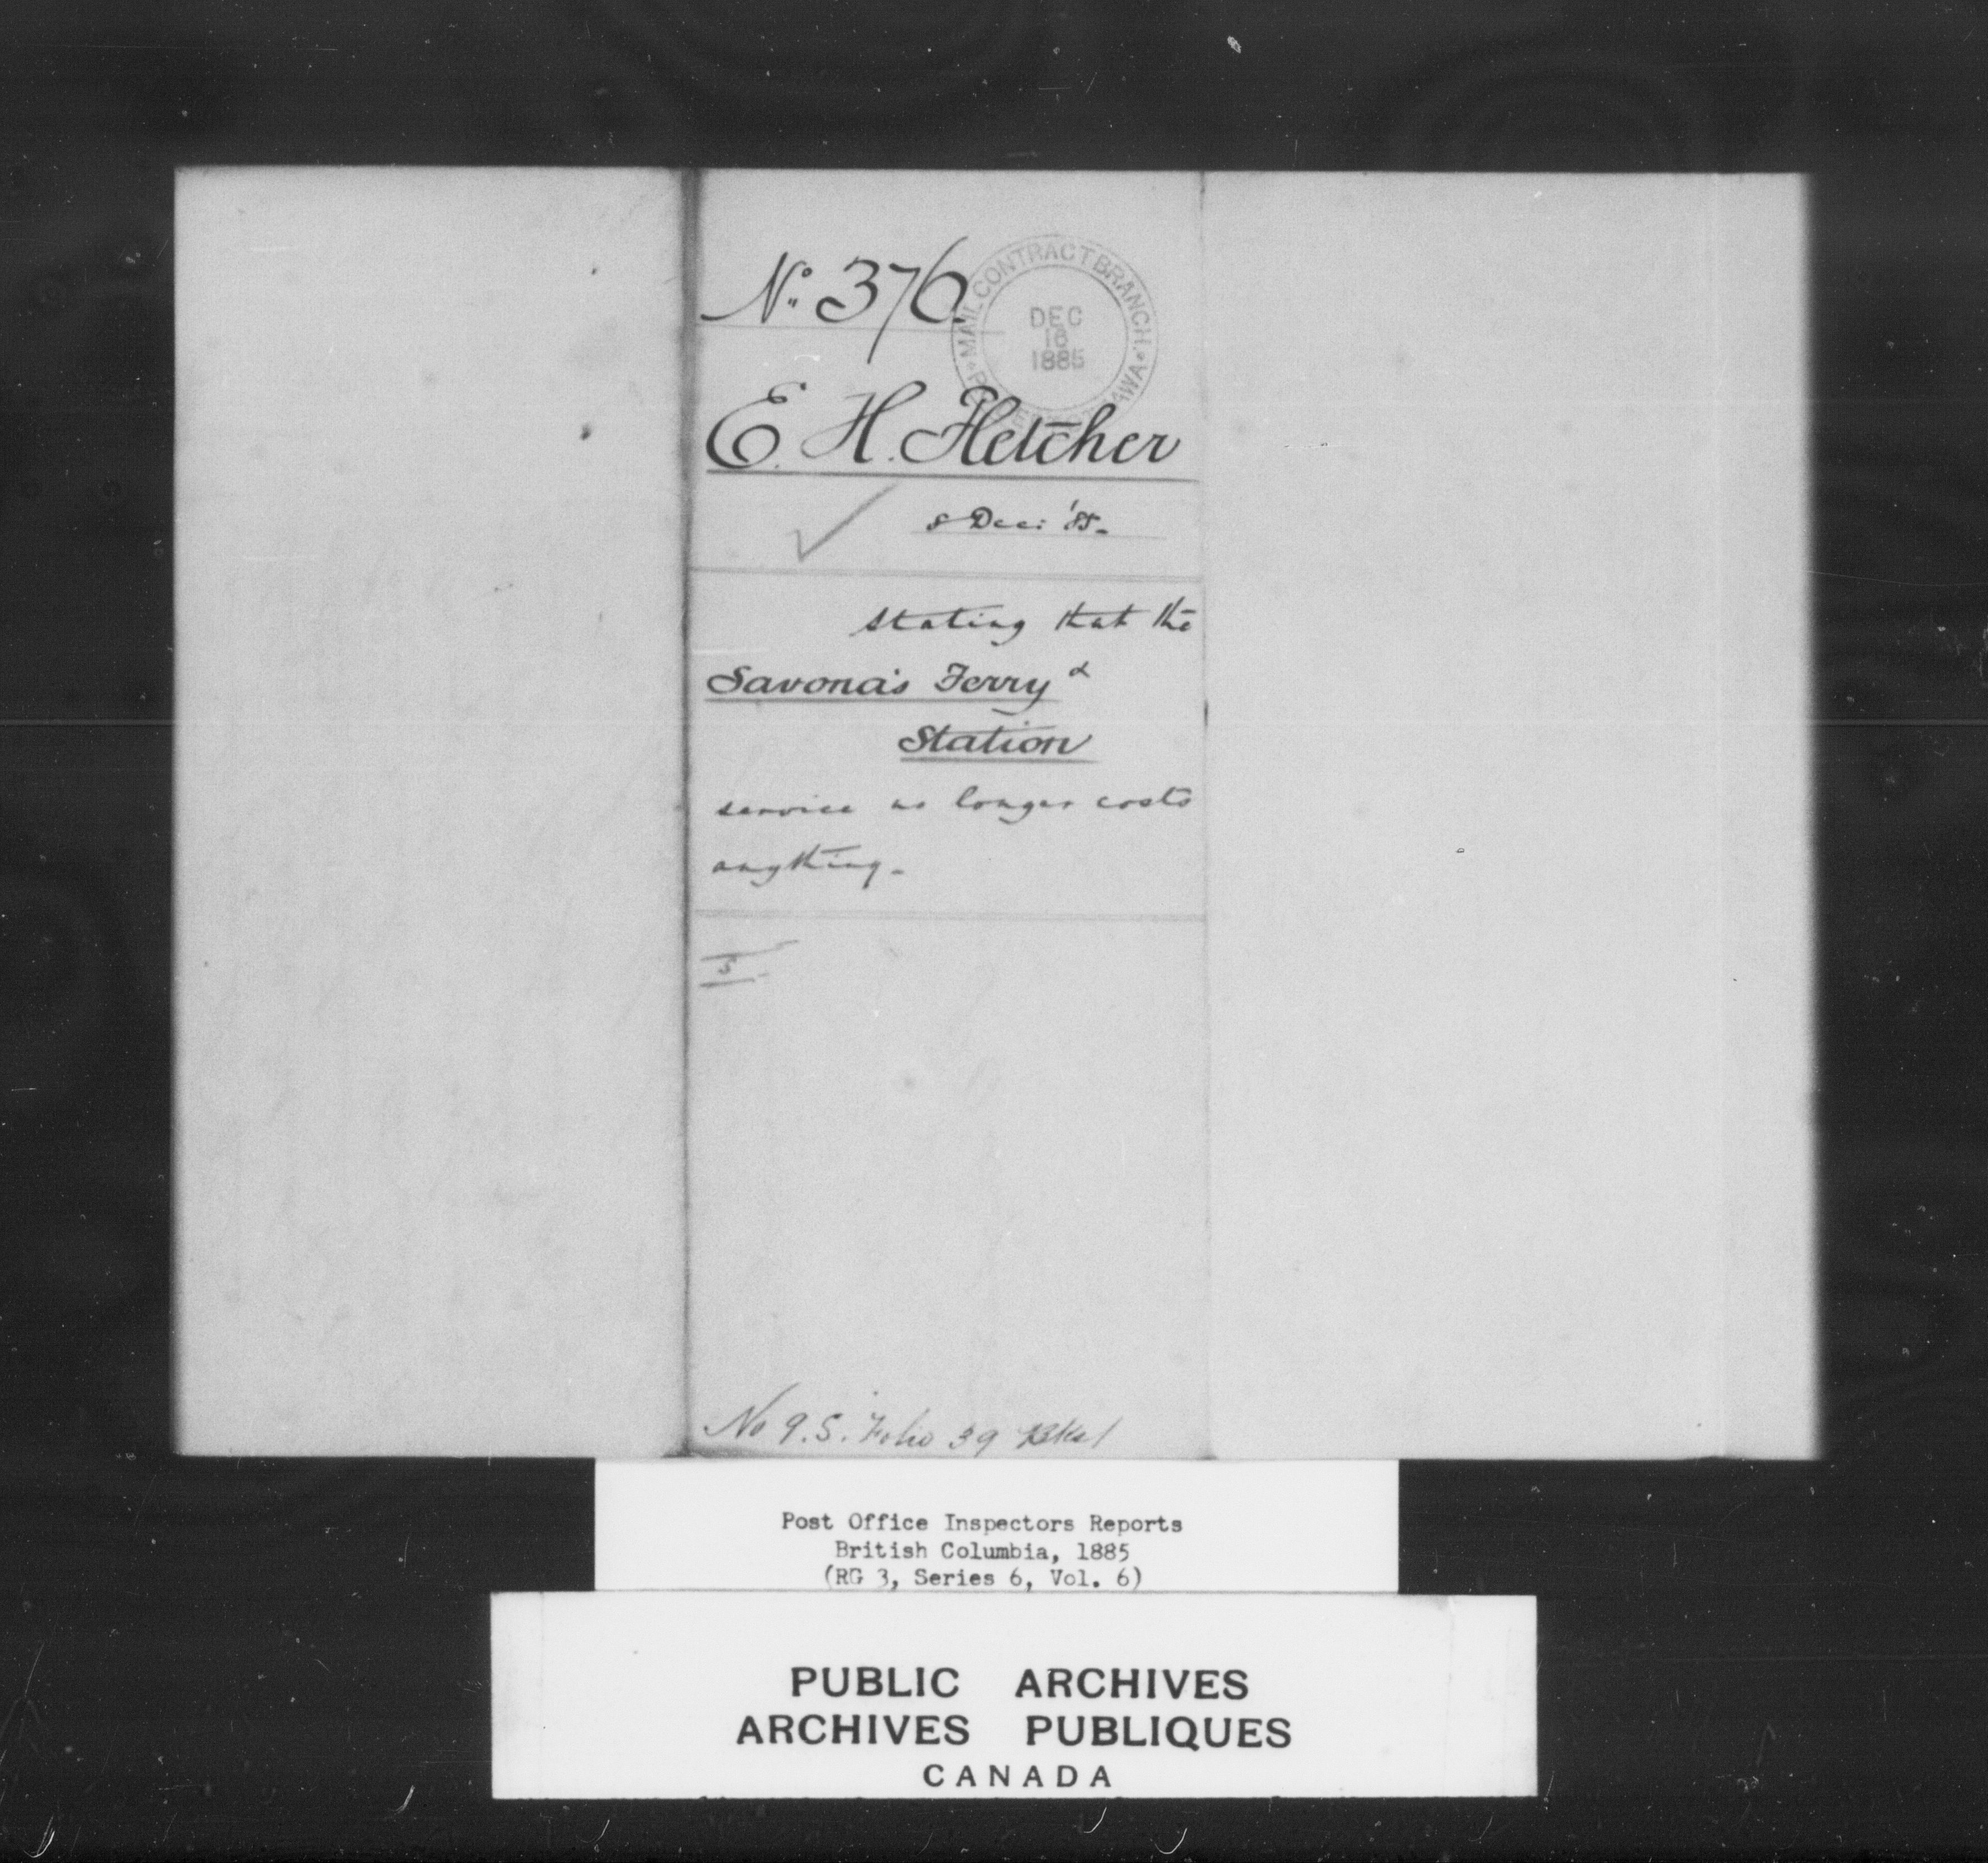 No. 376.
MAIL CONTRACT BRANCH.
DEC
16
1885
E. H. Fletcher
8 Dec: '85.
stating that the
Savona's Ferry &
Station
service no longer costs
anything.
No 9. S. Folio 39
Post Office Inspectors Reports
British Columbia, 1885
(RG 3, Series 6, Vol. 6)
PUBLIC ARCHIVES
ARCHIVES PUBLIQUES
CANADA